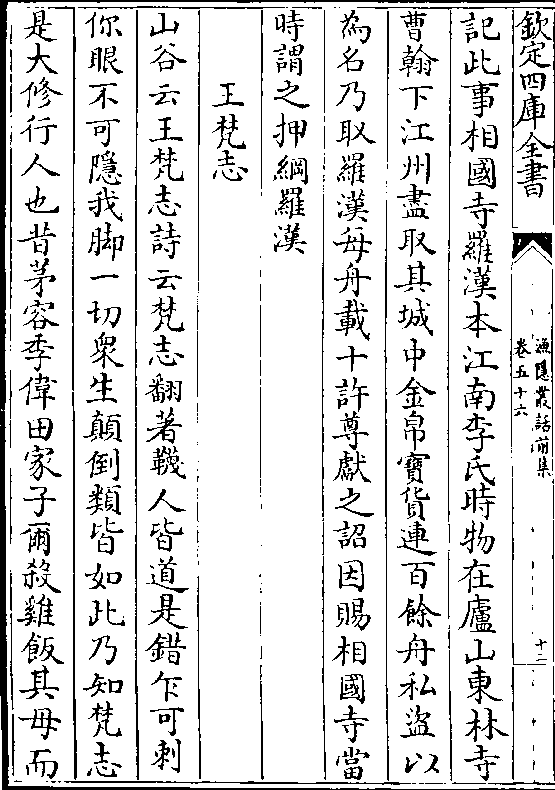 欽定四庫全書
漁隱叢話前集
卷五十六
十二
記此事相國寺羅漢本江南李氏時物在廬山東林寺
曹翰下江州盡取其城中金帛寳貨連百餘舟私盜以
為名乃取羅漢每舟載十許尊獻之詔因賜相國寺當
時謂之押綱羅漢
王梵志
山谷云王梵志詩云梵志翻著韈人皆道是錯乍可刺
你眼不可隱我脚一切衆生顛倒類皆如此乃知梵志
是大修行人也昔茅容季偉田家子爾殺雞飯其母而